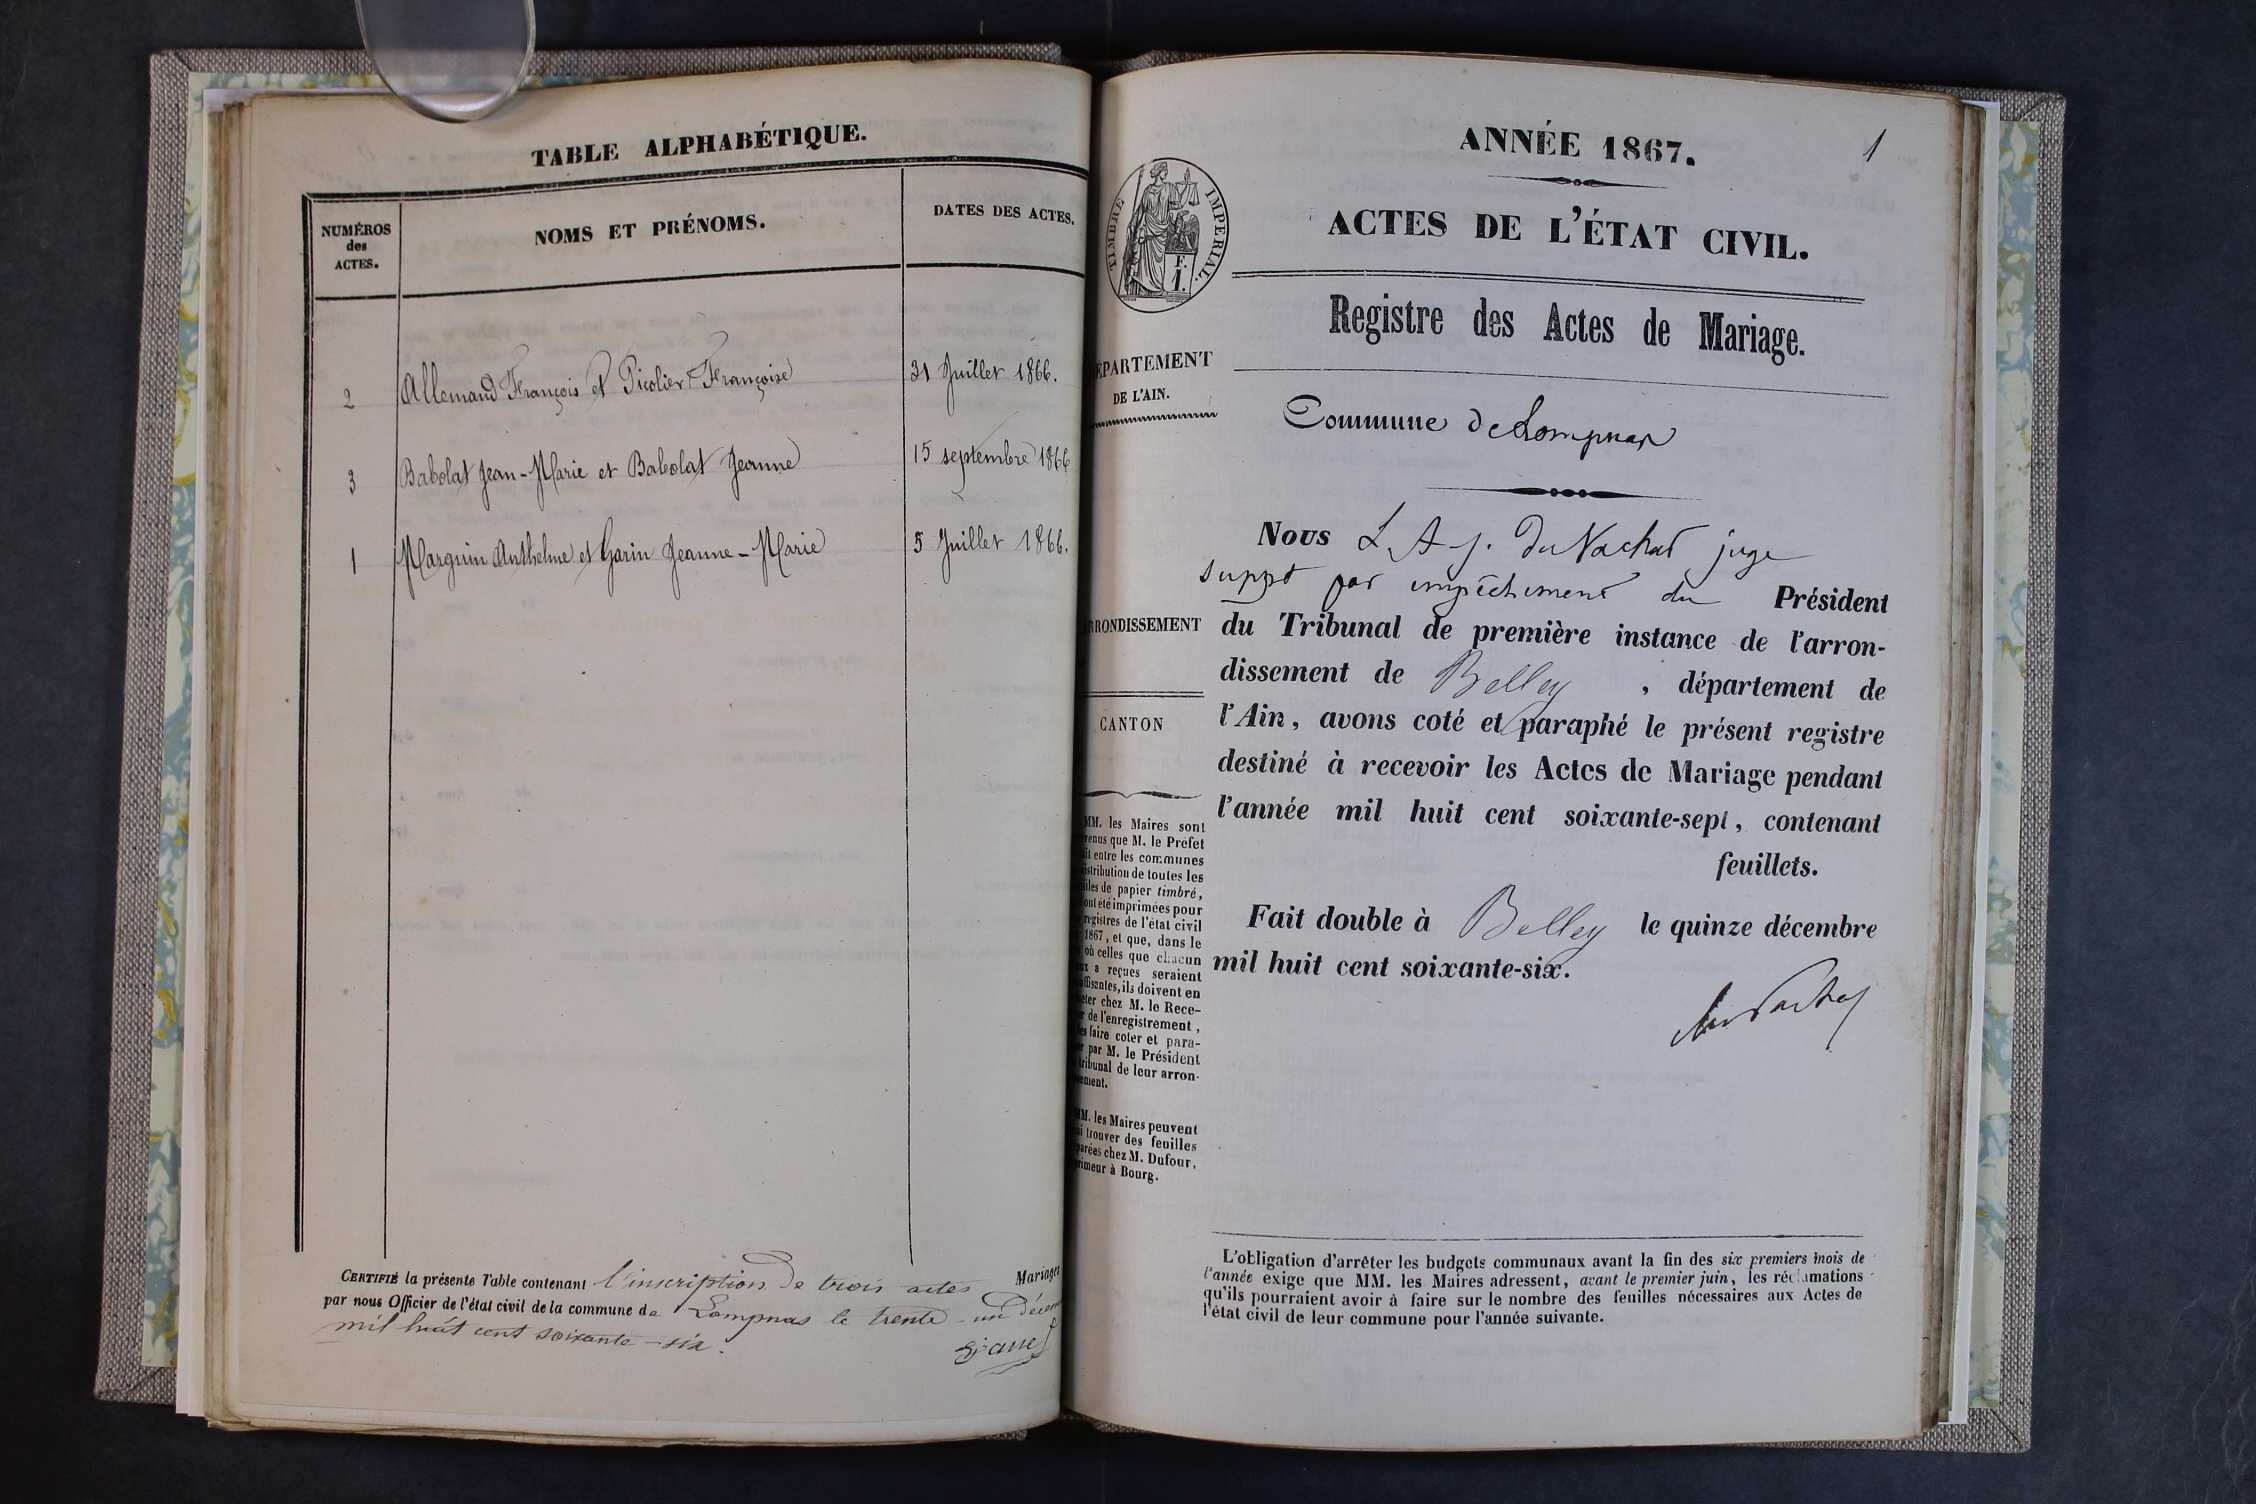 TABLE ALPHABÉTIQUE.
NUMÉROS
des
ACTES.
NOMS ET PRÉNOMS.
DATES DES ACTES.
2 Allemand François et Picolier Françoise 31 Juillet 1866.
3 Babolat Jean-Marie et Babolat Jeanne 15 septembre 1866
1 Marguin Anthelme et Garin Jeanne-Marie 5 Juillet 1866.
CERTIFIÉ la présente Table contenant l'inscription de trois actes Mariages
par nous Officier de l'état civil de la commune de Lompnas le trente-un décem
mil huit cent soixante-six.
ANNÉE 1867.
1
ACTES DE L'ÉTAT CIVIL.
TIMBRE IMPÉRIAL.
F.
1.
Registre des Actes de Mariage.
ÉPARTEMENT
DE L'AIN.
Commune de Lompnas
Nous L. A. J. du Nachat juge
suppt par empêchement du Président
du Tribunal de première instance de l'arron-
dissement de Belley, département de
l'Ain, avons coté et paraphé le présent registre
destiné à recevoir les Actes de Mariage pendant
l'année mil huit cent soixante-sept, contenant
feuillets.
Fait double à Belley le quinze décembre
mil huit cent soixante-six.
RRONDISSEMENT
CANTON
MM. les Maires sont
enus que M. le Préfet
it entre les communes
istribution de toutes les
iles de papier timbré,
ont été imprimées pour
registres de l'état civil
1867, et que, dans le
où celles que chacun
ux a reçues seraient
ffisantes, ils doivent en
eter chez M. le Rece-
r de l'enregistrement,
es faire coter et para-
r par M. le Président
tribunal de leur arron-
ement.
MM. les Maires peuvent
i trouver des feuilles
parées chez M. Dufour,
rimeur à Bourg.
L'obligation d'arrêter les budgets communaux avant la fin des six premiers mois de
l'année exige que MM. les Maires adressent, avant le premier juin, les réclamations
qu'ils pourraient avoir à faire sur le nombre des feuilles nécessaires aux Actes de
l'état civil de leur commune pour l'année suivante.